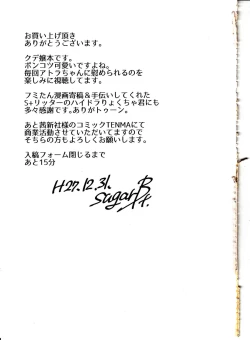 お買い上げ頂き
ありがとうございます。
クデ嬢本です。
ポンコツ可愛いですよね。
毎回アトラちゃんに慰められるのを
楽しみに視聴してます。
フミたん漫画寄稿&手伝いしてくれた
S+リッターのハイドラりょくちゃ君にも
多々感謝です。ありがトゥーン。
あと茜新社様のコミックTENMAにて
商業活動させていただいてますので
そちらの方もよろしくお願いします。
入稿フォーム閉じるまで
あと15分
H27.12.31.